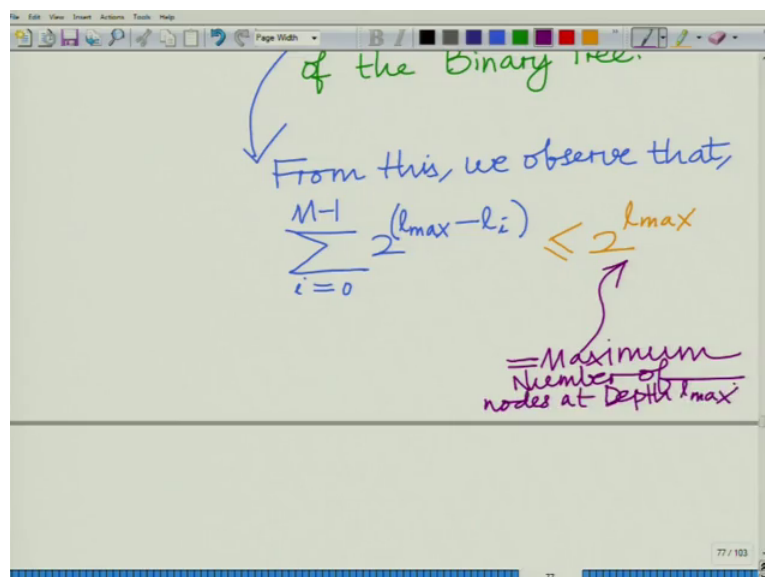 File Edit View Insert Actions Tools Help
Page Width B I
of the Binary Tree.
From this, we observe that,
M-1
∑ 2^(lmax - li) ≤ 2^lmax
i = 0
= Maximum
Number of
nodes at Depth lmax
77 / 103
77